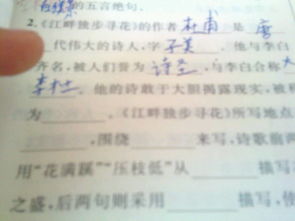 的五言绝句。
2.《江畔独步寻花》的作者杜甫是唐
代伟大的诗人,字子美,他与李白
齐名,被人们誉为诗圣,与李白合称大
李杜。他的诗敢于大胆揭露现实,被称
为____。《江畔独步寻花》所写地点
____,围绕____来写,诗歌前两
用“花满蹊”“压枝低”从____描写
之盛,后两句则采用____描写,